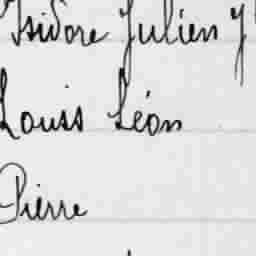 Isidore Julien
Louis Léon
Pierre